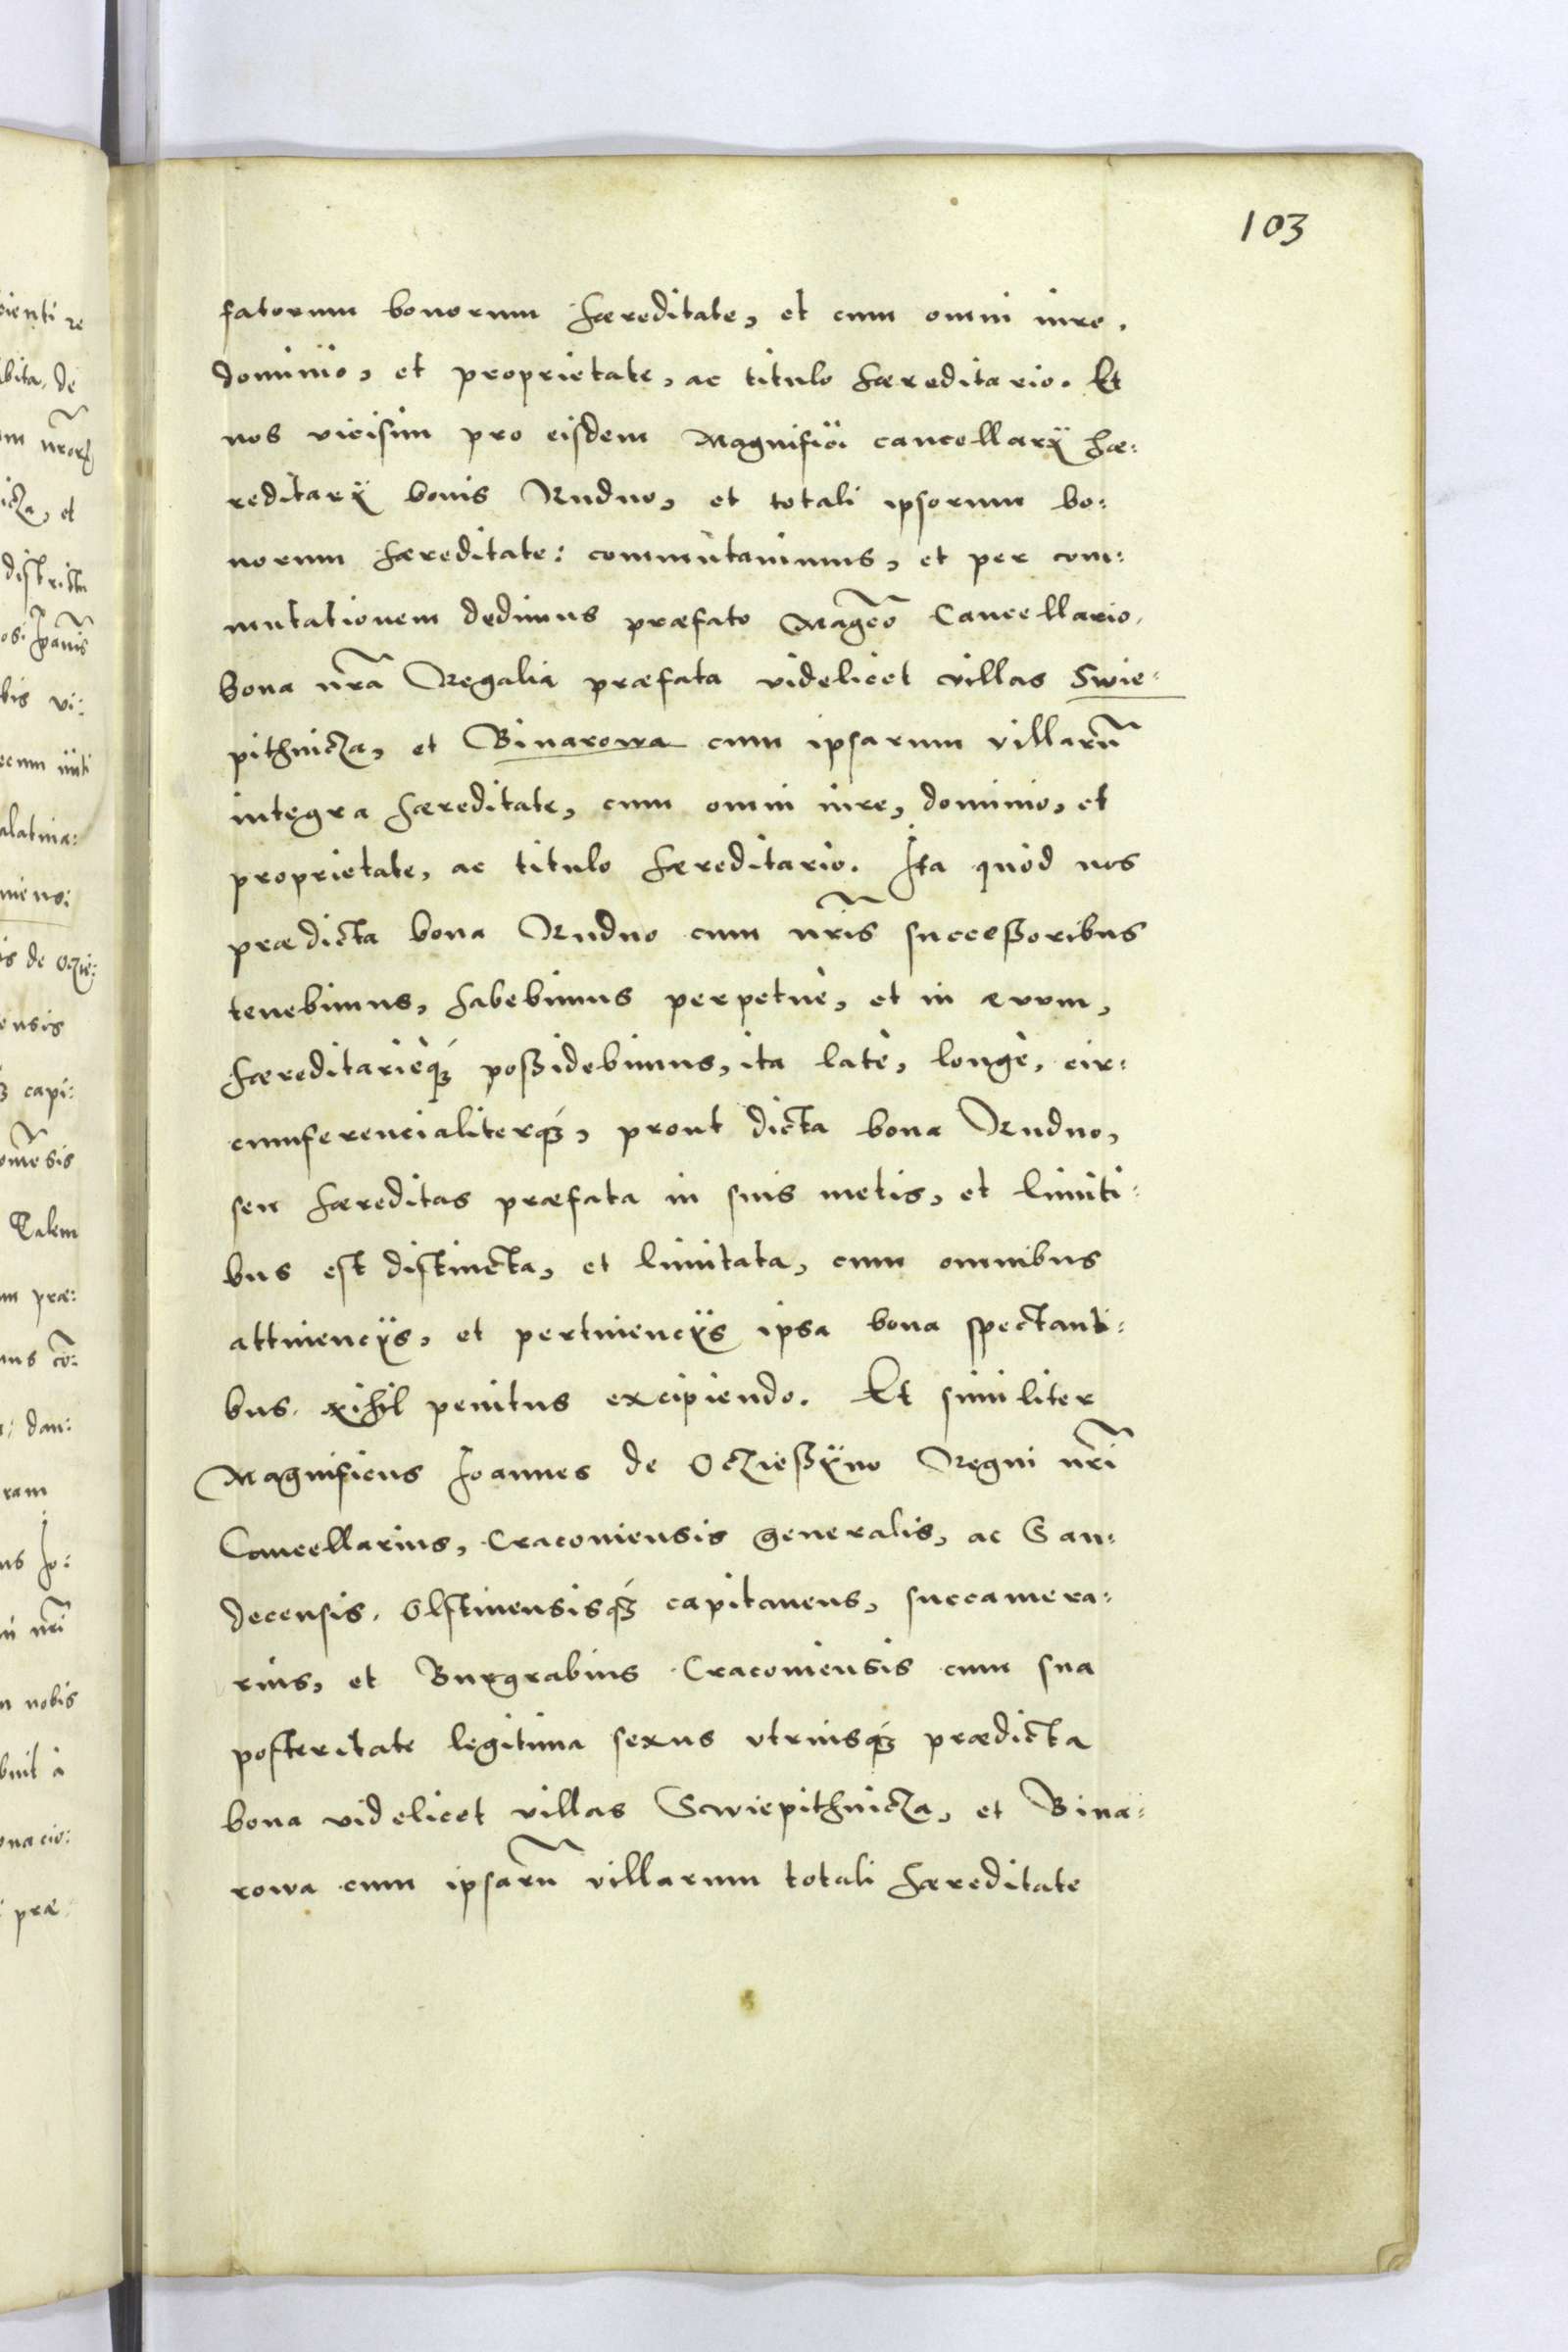 103
fatorum bonorum hæreditate, et cum omni iure,
dominio, et proprietate, ac titulo hæreditario. Et
nos vicisim pro eisdem Magnifici cancellarÿ hæ:
reditarÿ bonis Rudno, et totali ipsorum bo:
norum hæreditate: commùtauimus, et per com:
mutationem dedimus præfato Mag̃co Cancellario,
bona nr̃a Regalia præfata videlicet villas Swie:
pithnicza, et Binarowa cum ipsarum villarũ
integra hæreditate, cum omni iure, dominio, et
proprietate, ac titulo hæreditario. Ita quòd nos
prædicta bona Rudno cum nr̃is succeßoribus
tenebimus, habebimus perpetuè, et in ævum,
hæreditarièq́ꝫ poßidebimus, ita latè, longè, cir:
cumferencialiterq́ꝫ, prout dicta bona Rudno,
seu hæreditas præfata in suis metis, et limiti:
bus est distincta, et limitata, cum omnibus
attinencÿs, et pertinencÿs ipsa bona spectanti:
bus. nihil penitus excipiendo. Et similiter
Magnificus Joannes de Oczießÿno Regni nr̃i
Cancellarius, Cracouiensis generalis, ac San:
decensis, Olstinensisq́ꝫ capitaneus, succamera:
rius, et Burgrabius Cracouiensis cum sua
posteritate legitima sexus vtriusq́ꝫ prædicta
bona videlicet villas Swiepithnicza, et Bina:
rowa cum ipsarũ villarum totali hæreditate